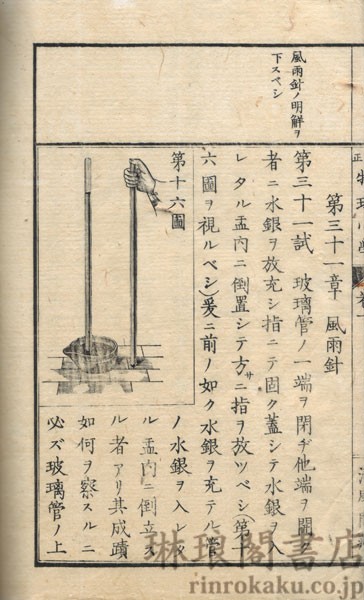 風雨針ノ明解ヲ
下スベシ
第三十一章 風雨針
第三十一試 玻璃管ノ一端ヲ閉ヂ他端ヲ開ク
者ニ水銀ヲ放充シ指ニテ固ク蓋シテ水銀ヲ入
レタル盂內ニ倒置シテ方サニ指ヲ放ツベシ(第十
六圖ヲ視ルベシ)爰ニ前ノ如ク水銀ヲ充テル管
第十六圖
ノ水銀ヲ入レタ
ル盂內ニ倒立ス
ル者アリ其成蹟
如何ヲ察スルニ
必ズ玻璃管ノ上
琳琅閣書店
rinrokaku.co.jp